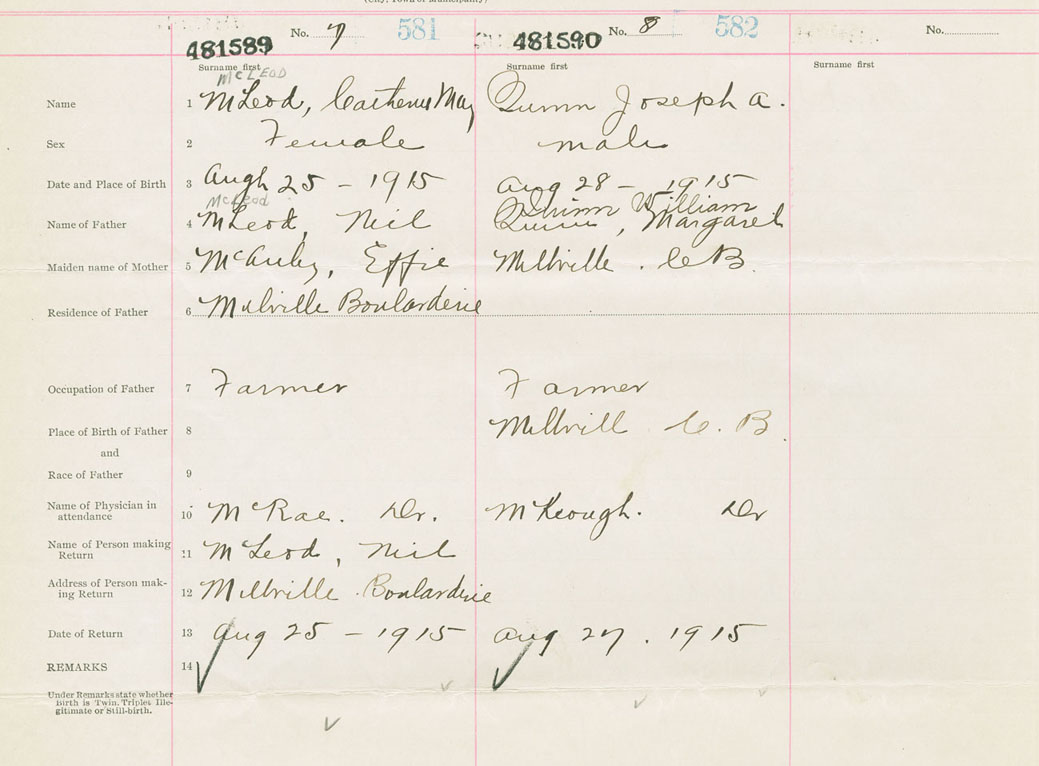 (City, Town or Municipality)
481589 No. 7 581 481590 No. 8 582 No.
Surname first Surname first Surname first
McLEOD
Name 1 McLeod, Catherine May Quinn Joseph A.
Sex 2 Female Male
Date and Place of Birth 3 Augh 25 - 1915 Aug 28 - 1915
McLeod Quinn William
Name of Father 4 McLeod, Neil Quinn, Margaret
Maiden name of Mother 5 McAuley, Effie Millville. C B.
Residence of Father 6 Millville Boularderie
Occupation of Father 7 Farmer Farmer
Place of Birth of Father 8 Millvill C. B.
and
Race of Father 9
Name of Physician in
attendance 10 McRae. Dr. McKeough. Dr
Name of Person making
Return 11 McLeod, Neil
Address of Person mak-
ing Return 12 Millville. Boularderie
Date of Return 13 Aug 25 - 1915 Aug 27. 1915
REMARKS 14
Under Remarks state whether
Birth is Twin. Triplet Ille-
gitimate or Still-birth.